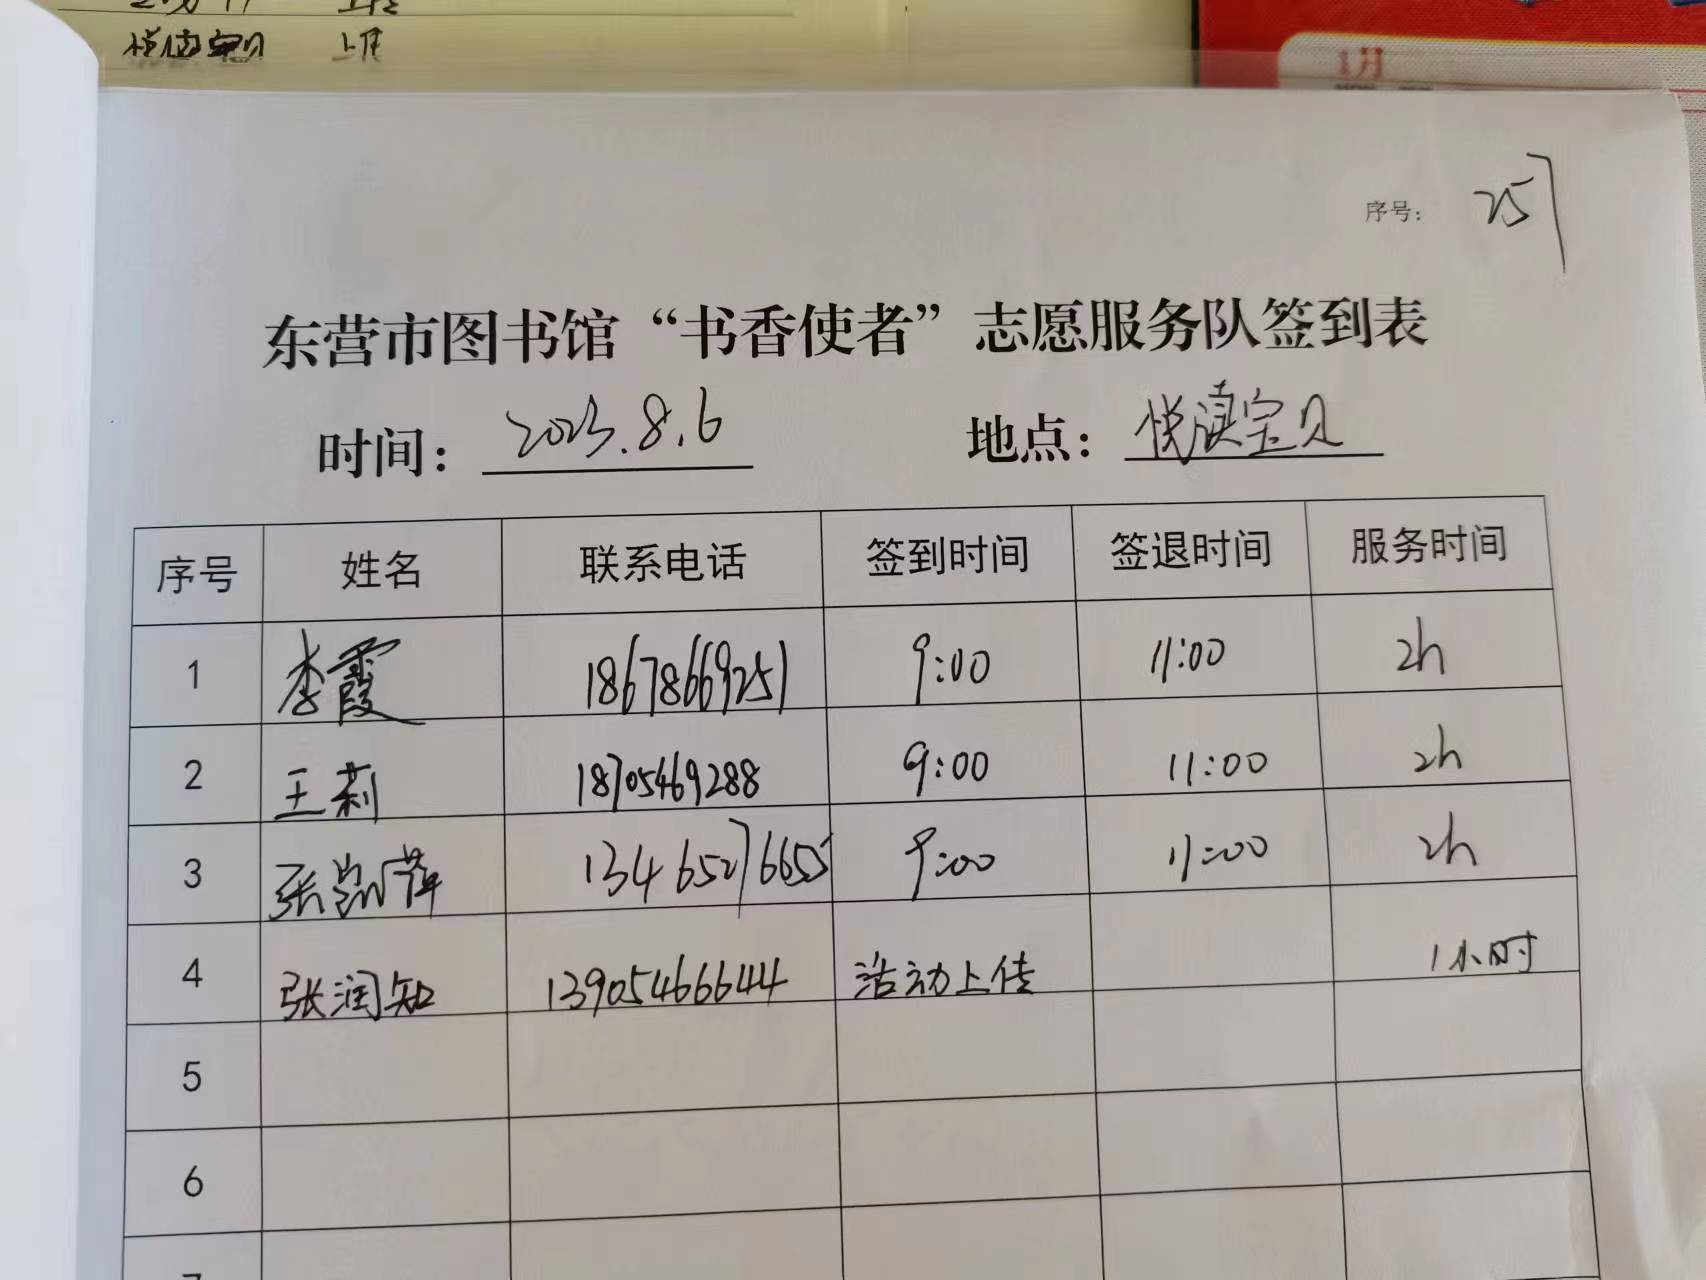 悦读宝贝 上午
1月
序号: 257
东营市图书馆“书香使者”志愿服务队签到表
时间: 2023.8.6 地点: 悦读宝贝
序号 姓名 联系电话 签到时间 签退时间 服务时间
1 李霞 18678669251 9:00 11:00 2h
2 王莉 18705469288 9:00 11:00 2h
3 张 萍 13465276655 9:00 11:00 2h
4 张润知 13905466644 活动上传 1小时
5
6